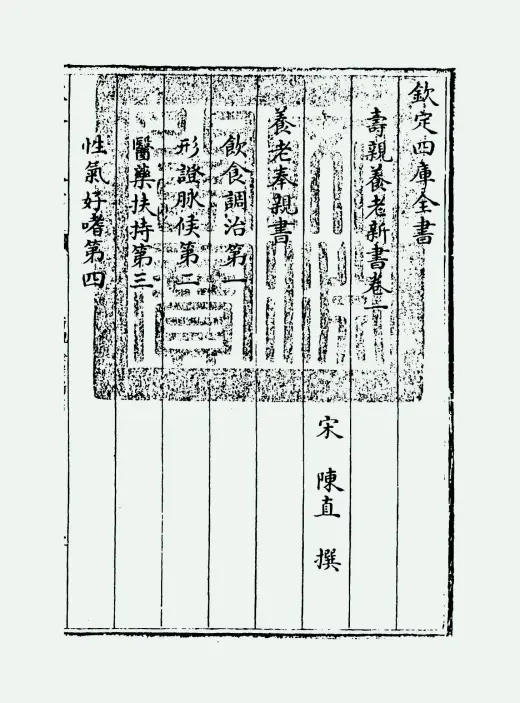 欽定四庫全書
壽親養老新書卷一
宋 陳直 撰
養老奉親書
飲食調治第一
形證脉候第二
醫藥扶持第三
性氣好嗜第四